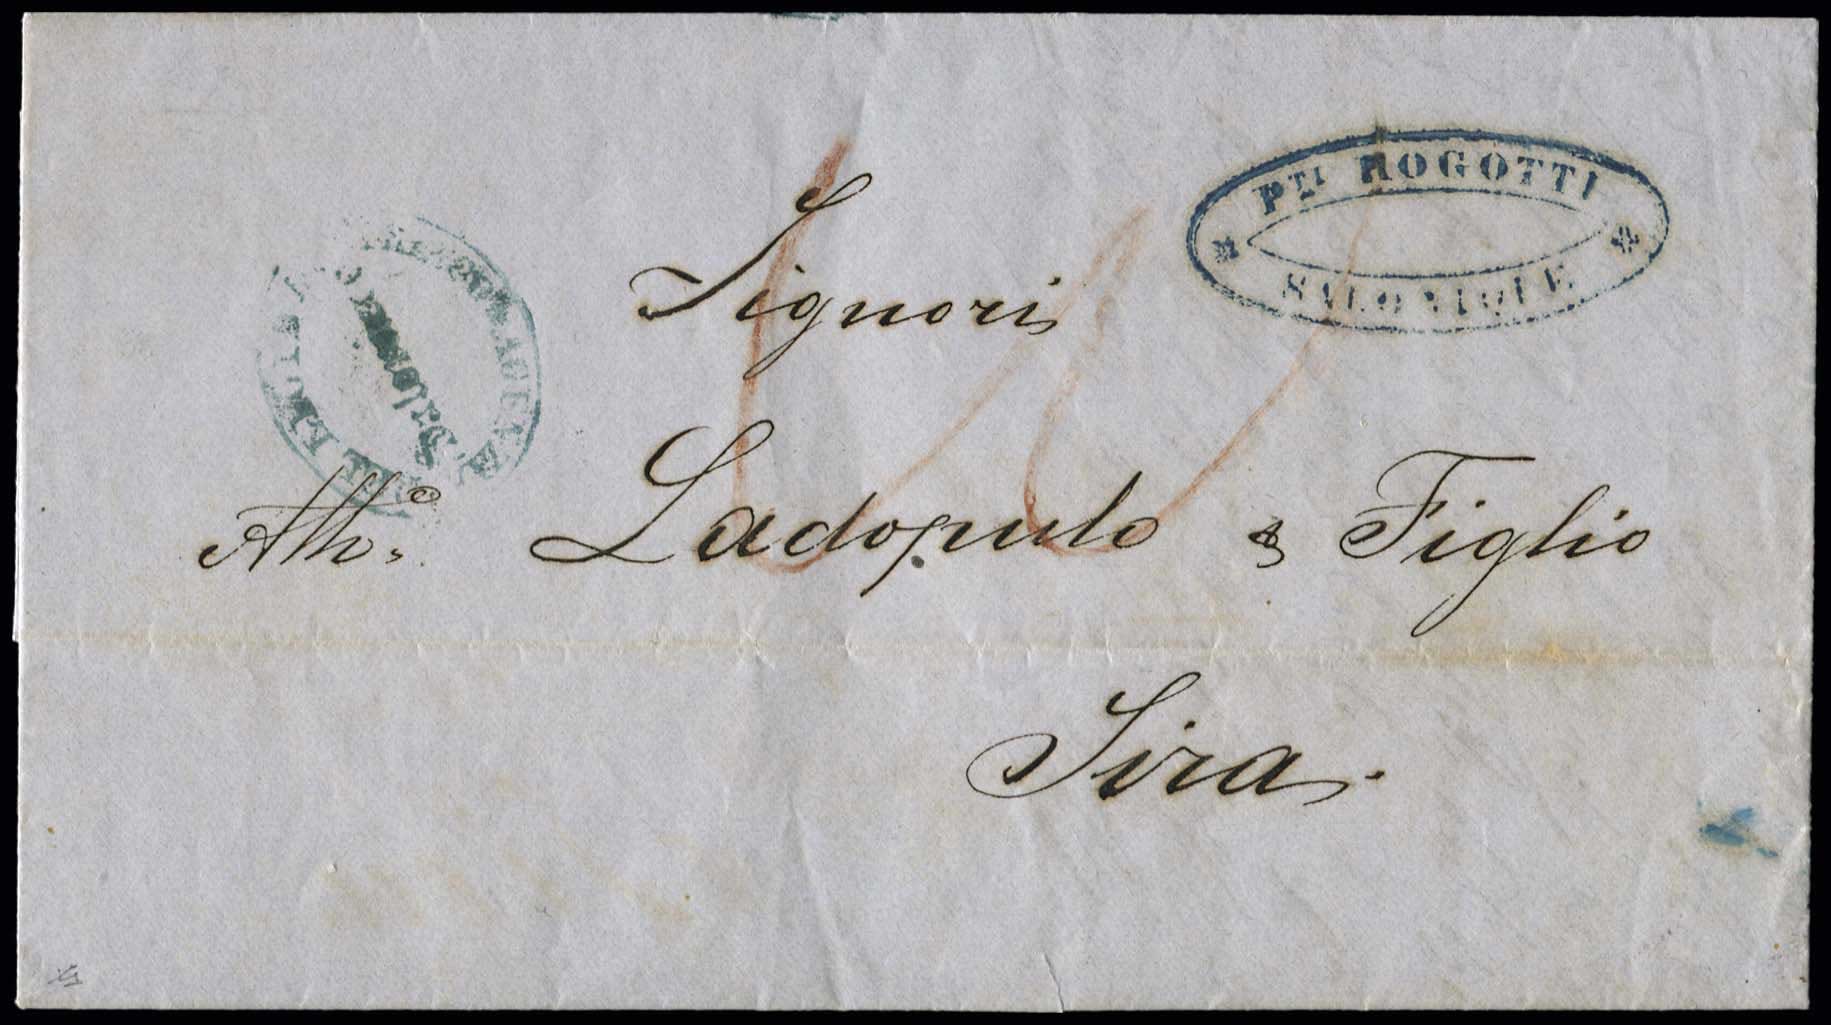 Pᵀᴵ ROGOTTI
SALONIQUE
Signori
Ath. Ladopulo & Figlio
Sira.